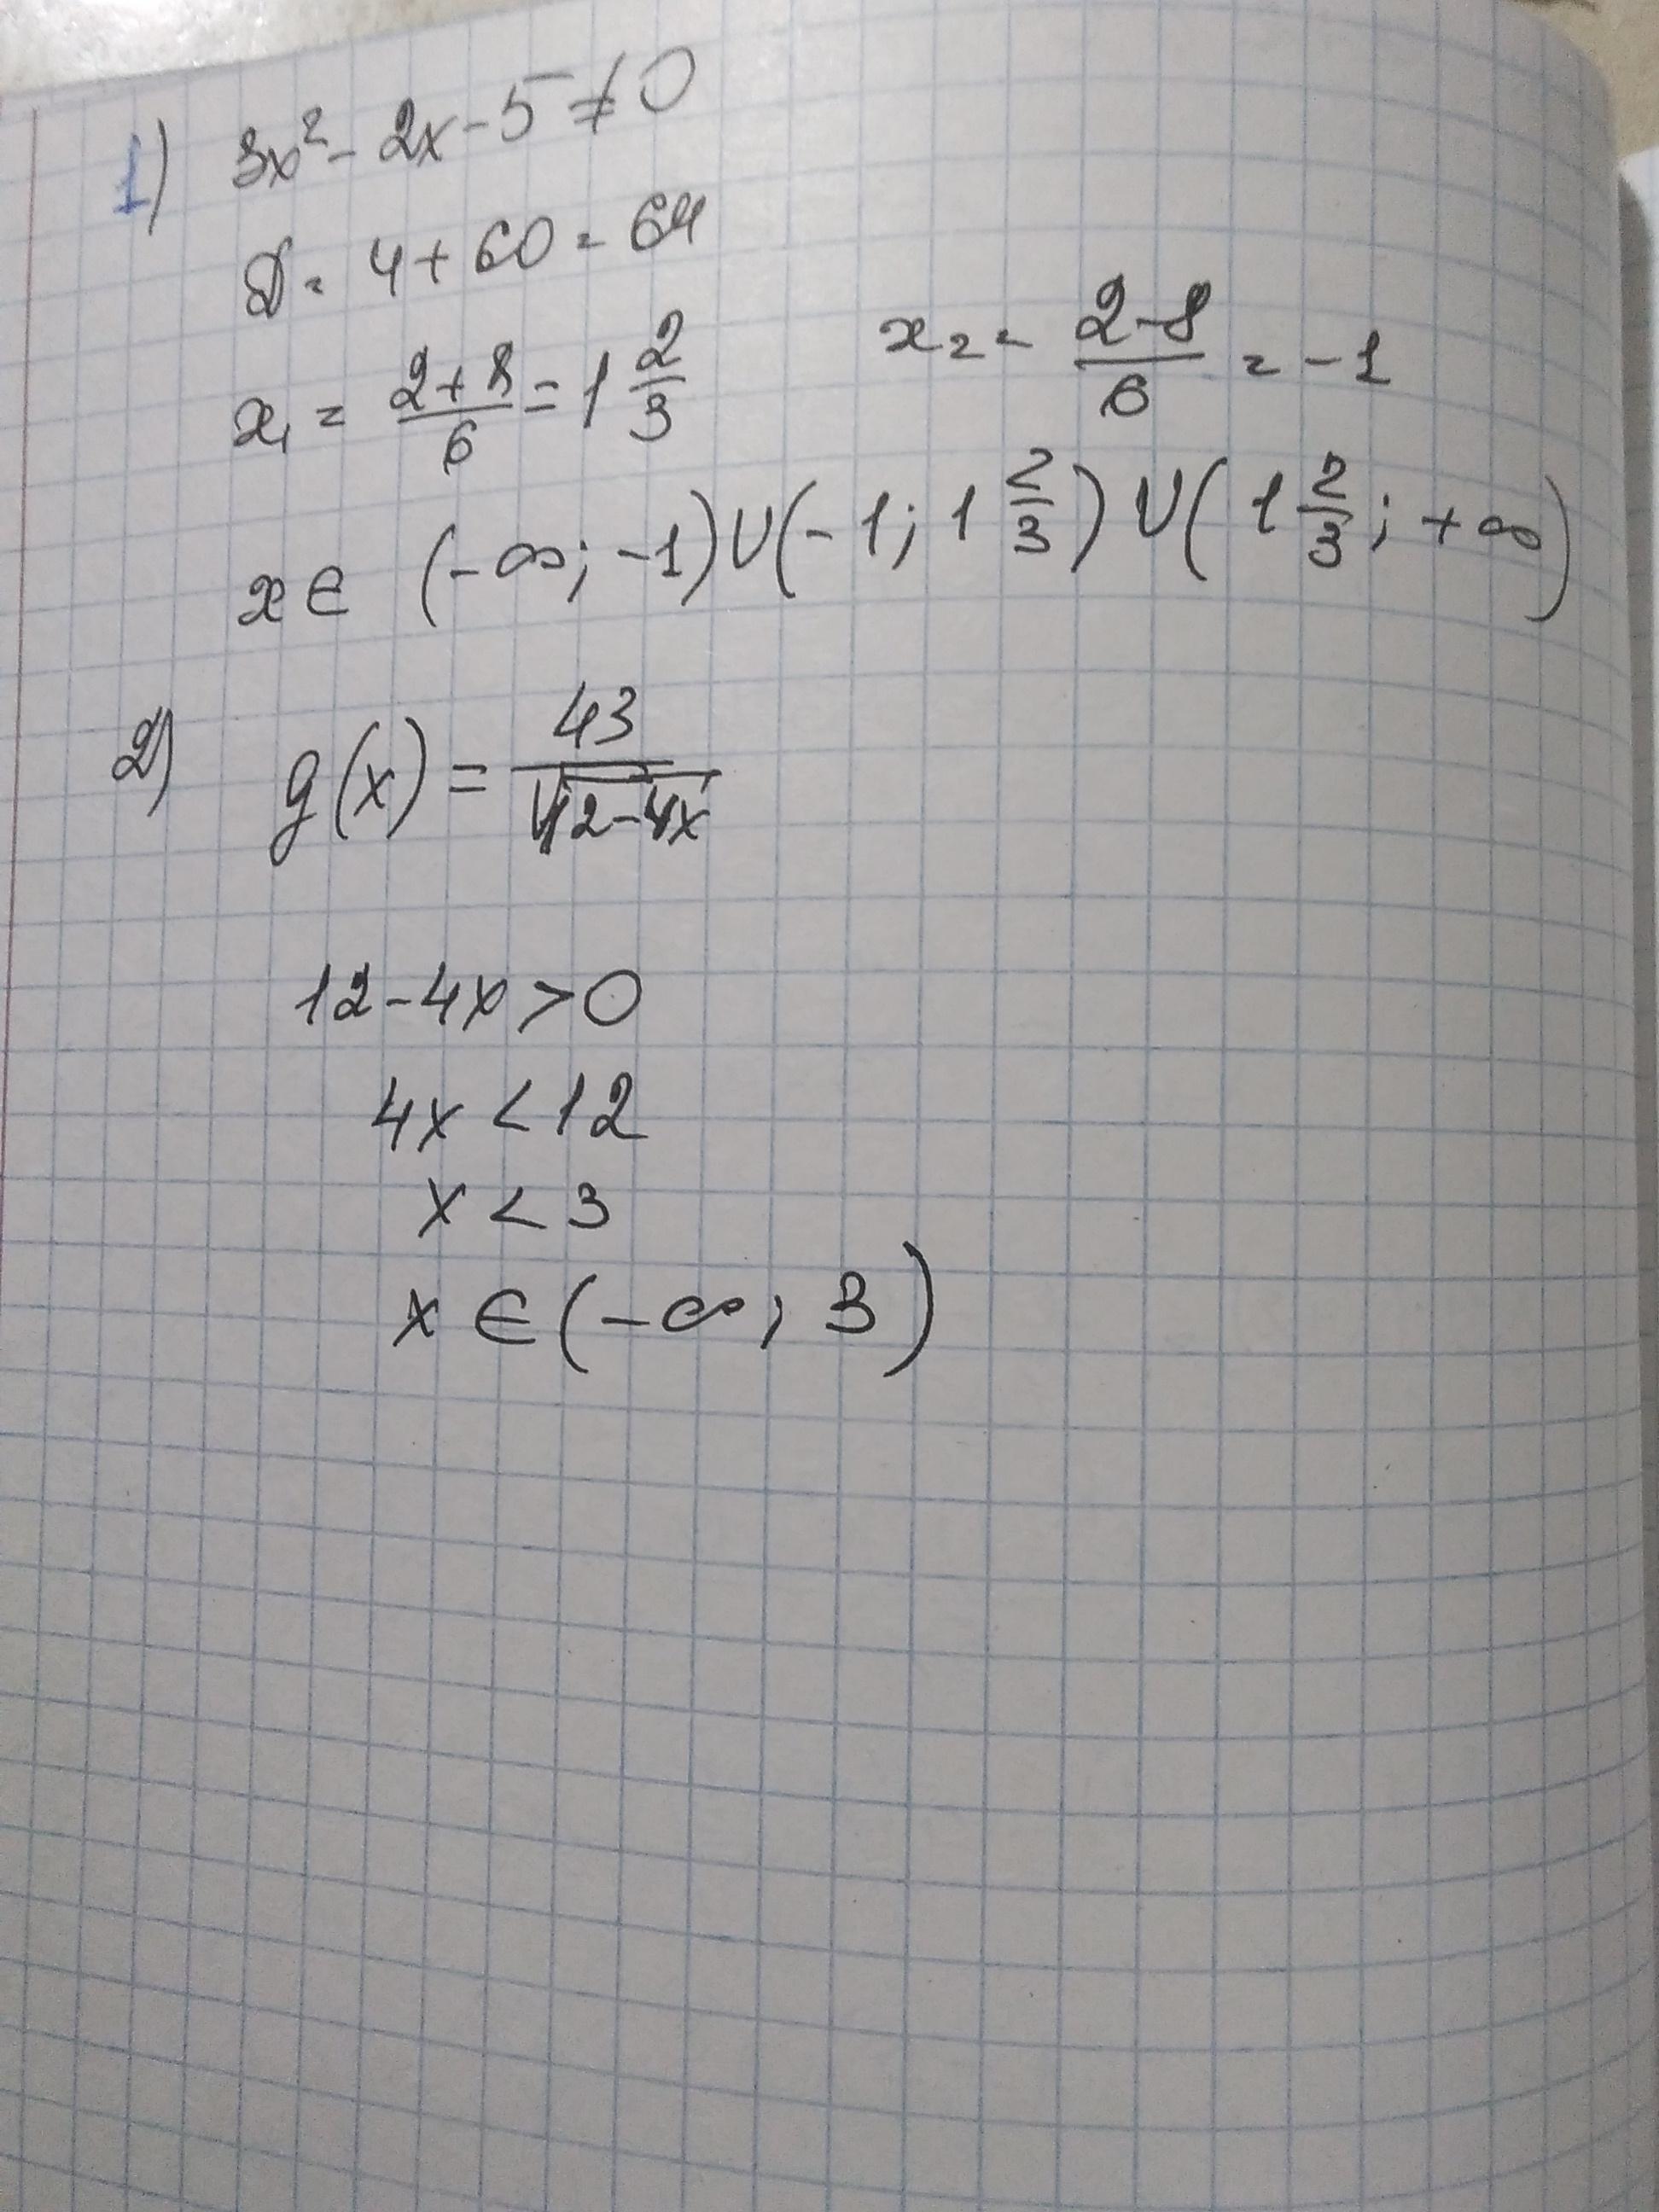 1) 3x² - 2x - 5 ≠ 0
D = 4 + 60 = 64
x₁ = (2+8)/6 = 1 2/3    x₂ = (2-8)/6 = -1
x ∈ (-∞; -1) ∪ (-1; 1 2/3) ∪ (1 2/3; +∞)
2) g(x) = 43/√(12-4x)
12 - 4x > 0
4x < 12
x < 3
x ∈ (-∞; 3)